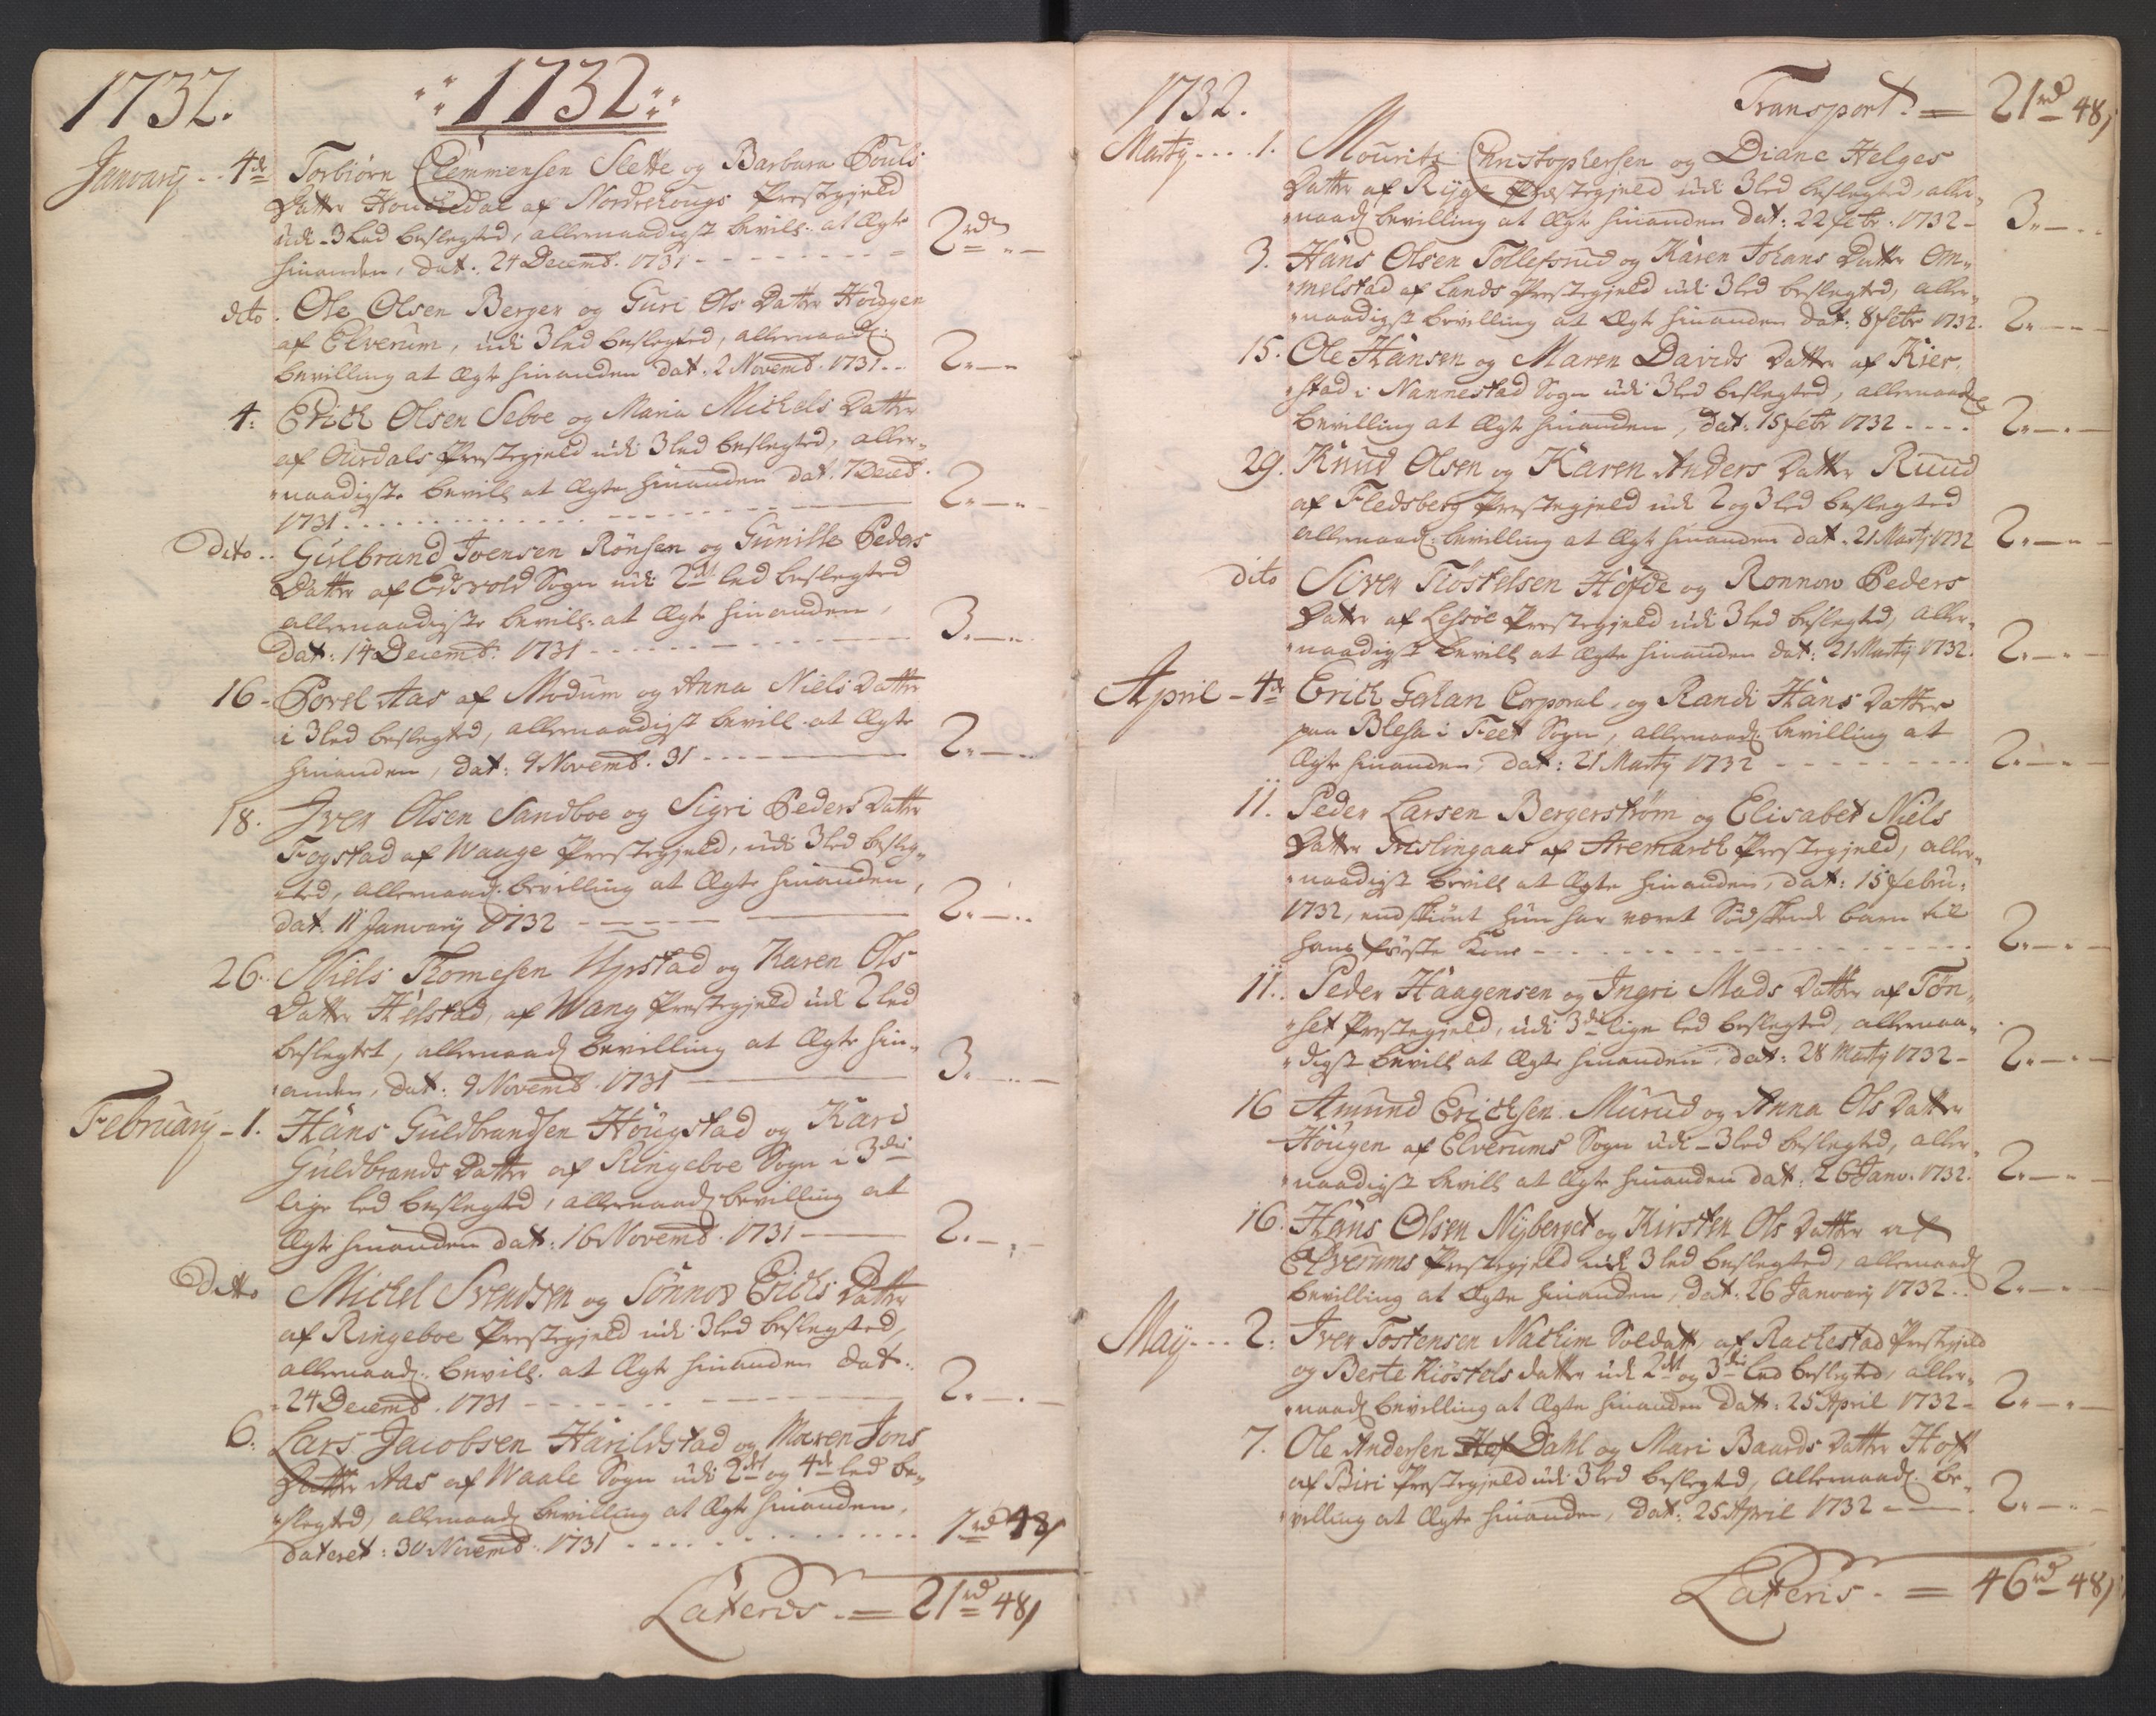 1732.
∴ 1732 ∴
January - - 4de Torbiörn Clemmensen Slette og Barbara Pouls
Datter af Nordrehougs Prestegjeld
udi 3 Led beslegted, allernaadigst bevill: at Ægte
hinanden, dat: 24 Decemb. 1731 - - - 2rd - -
dito. Ole Olsen Berger og Guri Ols Datter Hougen
af Elverum, udi 3 led beslegted, allernaad:
bevilling at Ægte hinanden dat: 2 Novemb. 1731 - - 2. - -
4. Erich Olsen Seboe og Maria Michels Datter
af Ourdals Prestegjeld udi 3 led beslegted, aller-
naadigste bevill: at Ægte hinanden dat: 7 Decemb.
1731 - - - 2. - -
Dito.. Gulbrand Ivensen Rönsen og Gunille Peders
Datter af Edsvold Sogn udi 2det led beslegted
allernaadigste bevill: at Ægte hinanden,
dat: 14 Decemb. 1731 - - - 3. - -
16- Povel Aas af Modum og Anna Niels Datter
i 3 led beslegted, allernaadigst bevill: at Ægte
hinanden, dat: 9 Novemb. 31 - - - 2. - -
18. Iver Olsen Sandboe og Sigri Peders Datter
Fogstad af Waage Prestegjeld, udi 3 led besleg-
ted, allernaad: bevilling at Ægte hinanden,
dat. 11 January 1732 - - - 2. - -
26. Niels Thomesen Upstad og Karen Ols
Datter Helstad, af Wang Prestegjeld udi 2 led
beslegtet, allernaad: bevilling at Ægte hin-
anden, dat: 9 Novemb. 1731 - - - 3. - -
February - 1. Hans Guldbrandsen Hougstad og Kari
Guldbrands Datter af Ringeboe Sogn i 3die
lige led beslegted, allernaad: bevilling at
Ægte hinanden dat: 16 Novemb. 1731 - - - 2. - -
Ditto Michel Svendsen og Sönnov Erichs Datter
af Ringeboe Prestegjeld udi 3 led beslegted,
allernaad: bevill: at Ægte hinanden dat:
24 Decemb. 1731 - - - 2. - -
6. Lars Jacobsen Harildstad og Maren Jons
Datter Aas af Waale Sogn udi 2det og 4de led be-
slegted, allernaad: bevilling at Ægte hinanden,
dateret: 30 Novemb. 1731 - - - 1rd 48ß
Lateris. = 21rd 48ß
1732. Transport. = 21rd 48ß
Marty - - - 1. Mouritz Christophersen og Diane Helges
Datter af Rÿge Prestegjeld udi 3 led beslegted, aller-
naad: bevilling at Ægte hinanden dat: 22 febr: 1732 - 3. - -
3. Hans Olsen Tollefsrud og Karen Johans Datter Om-
melstad af Lands Prestegjeld udi 3 led beslegted, aller-
naadigst bevilling at Ægte hinanden dat: 8 febr 1732. 2. - -
15. Ole Hansen og Maren Davids Datter af Kier-
stad i Nannestad Sogn udi 3 led beslegted, allernaad:
bevilling at Ægte hinanden, dat: 15 febr 1732 - - - 2. - -
29. Knud Olsen og Karen Anders Datter Ruud
af Fledsberg Prestegjeld udi 2 og 3 led beslegted
allernaad: bevilling at Ægte hinanden dat: 21 Marty 1732 2. - -
dito Siver Tiöstelsen Höfde og Ronnow Peders
Datter af Lessöe Prestegjeld udi 3 led beslegted, aller-
naadigst bevill: at Ægte hinanden dat: 21 Marty 1732. 2. - -
April - 4de Erich Galan Corporal, og Randi Hans Datter
paa Blesa i Feet Sogn, allernaad: bevilling at
Ægte hinanden, dat: 21 Marty 1732 - - - 2. - -
11. Peder Larsen Bergerström og Elisabet Niels
Datter af Aremarck Prestegjeld, aller-
naadigst bevill: at Ægte hinanden, dat: 15 febru:
1732, endskiönt hun har veret Södskende barn til
hans förste Kone - - - 2. - -
11. Peder Haagensen og Ingri Mads Datter af Tön-
set Prestegjeld, udi 3die lige led beslegted, allernaa-
digst bevill: at Ægte hinanden, dat: 28 Marty 1732 - 2. - -
16 Amund Erichsen Murud og Anna Ols Datter
Hougen af Elverums Sogn udi 3 led beslegted, aller-
naadigst bevill: at Ægte hinanden dat: 26 Janv. 1732. 2. - -
16. Hans Olsen Nyberget og Kirsten Ols Datter af
Elverums Prestegjeld udi 3 led beslegted, allernaad:
bevilling at Ægte hinanden, dat: 26 January 1732. 2. - -
May - - - 2. Iver Tostensen Nackim Soldatt, af Rackestad Prestegjeld
og Berte Kiöstels datter udi 2det og 3die led beslegted, aller-
naad: bevilling at Ægte hinanden dat: 25 April 1732 - 2. - -
7. Ole Andersen Dahl og Mari Baards Datter Hoff
af Biri Prestegjeld udi 3 led beslegted, allernaad: be-
villing at Ægte hinanden, dat: 25 April 1732 - - 2. - -
Lateris. = 46rd 48ß